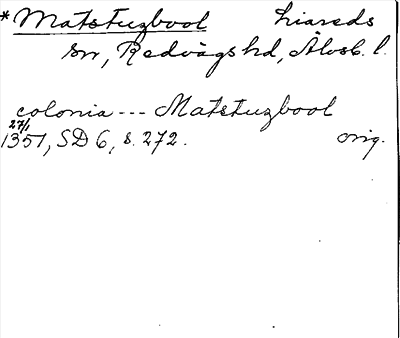 *Matstuzbool Liareds
sn, Redvägs hd, Älvsb. l.
colonia --- Matstuzbool
27/1
1351, SD 6, s. 272. orig.